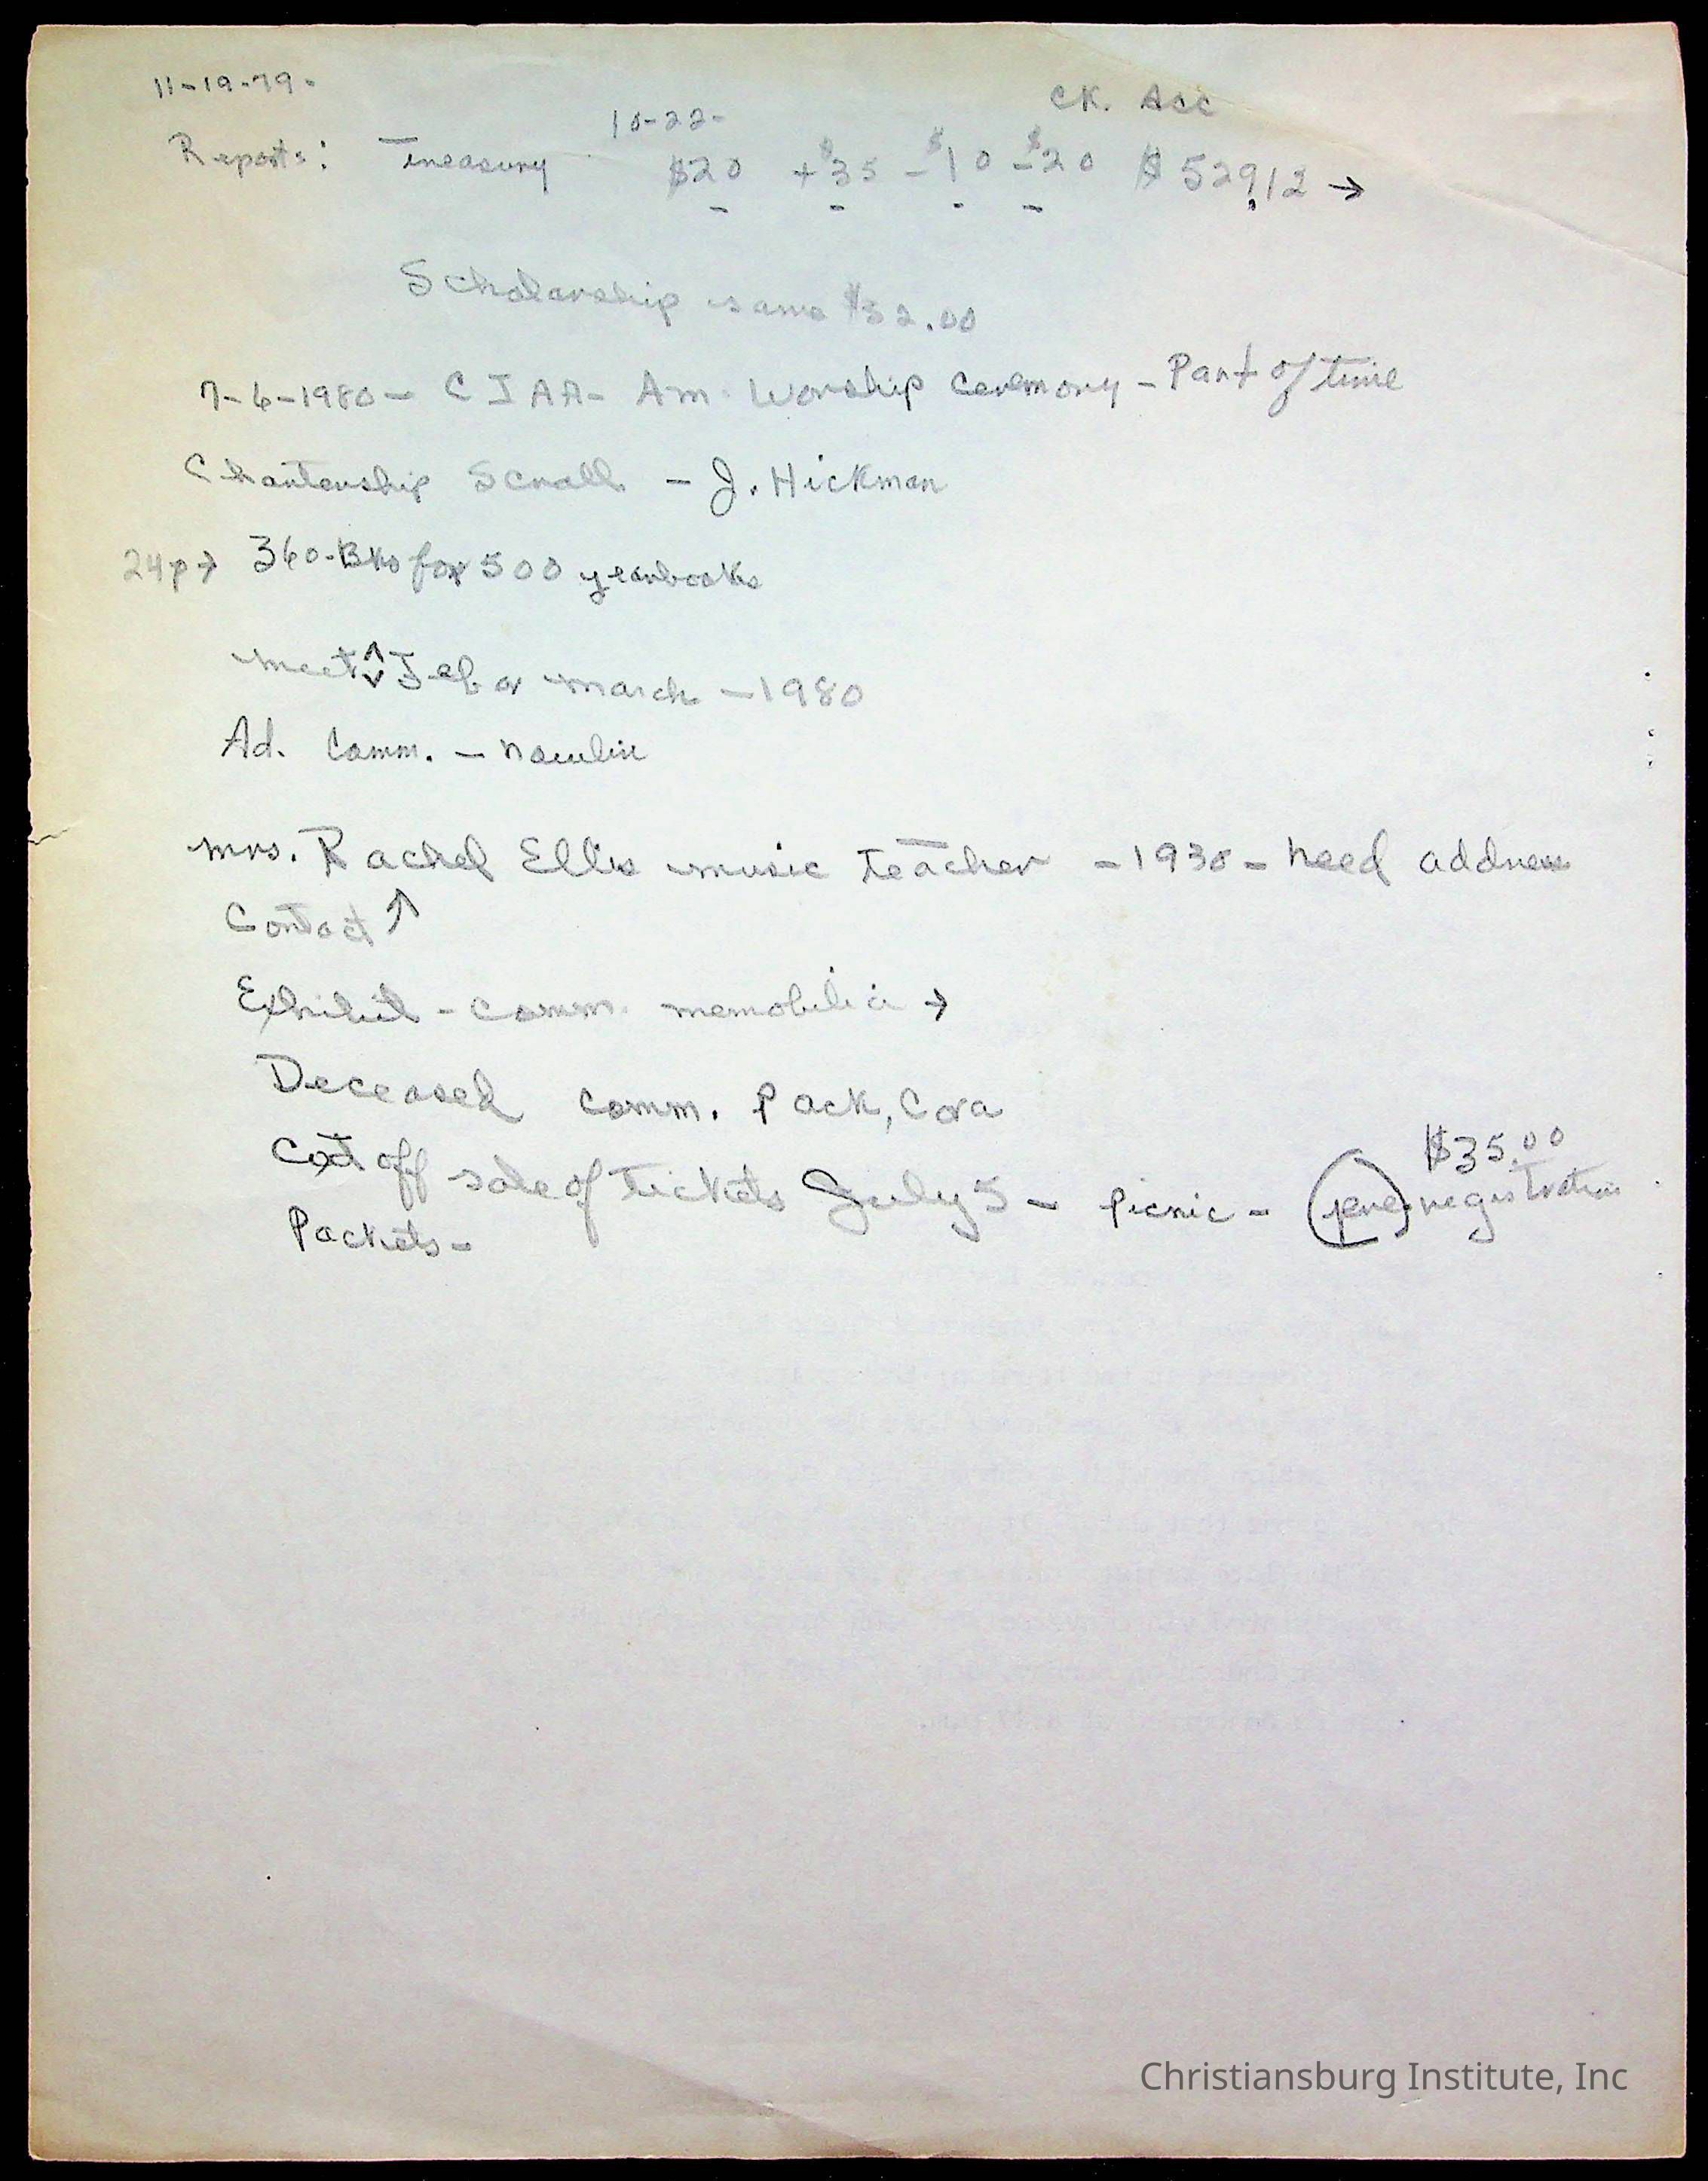 11-19-79-
10-22- CK. Acc
Reports: Treasury $20 + $35 - $10 - $20 $529.12 →
Scholarship same $32.00
7-6-1980- CIAA- Am. Worship Ceremony - Part of time
Chartership Scroll - J. Hickman
24p → 360-Bks for 500 yearbooks
meet Feb or march - 1980
Ad. Comm. - Nowlin
Mrs. Rachel Ellis music teacher - 1930 - need address
Contact ↑
Exhibit - comm. memobilia →
Deceased comm. Pack, Cora
$35.00
Cut off sale of tickets July 5 - Picnic - (pre) registration
Packets -
Christiansburg Institute, Inc